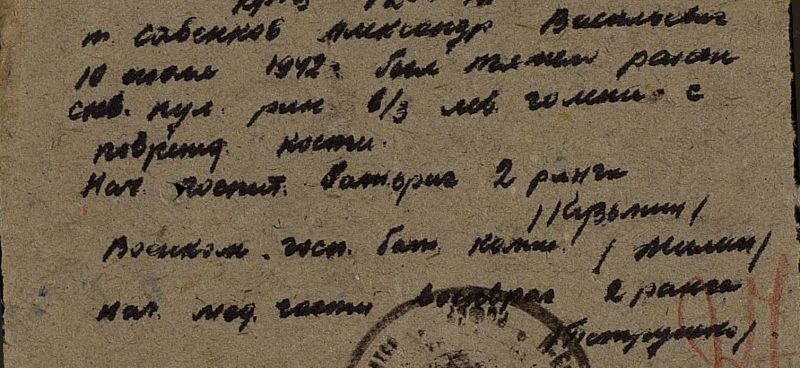 т. Савенков Александр Васильевич
10 июля 1942 г. был тяжело ранен
скв. пул. ран в/3 лев. голени с
поврежд. кости.
Нач. госпит. Военврач 2 ранга
/Кузьмин/
Военком. госп. бат. комис. /Жилин/
Нач. мед. части военврач 2 ранга